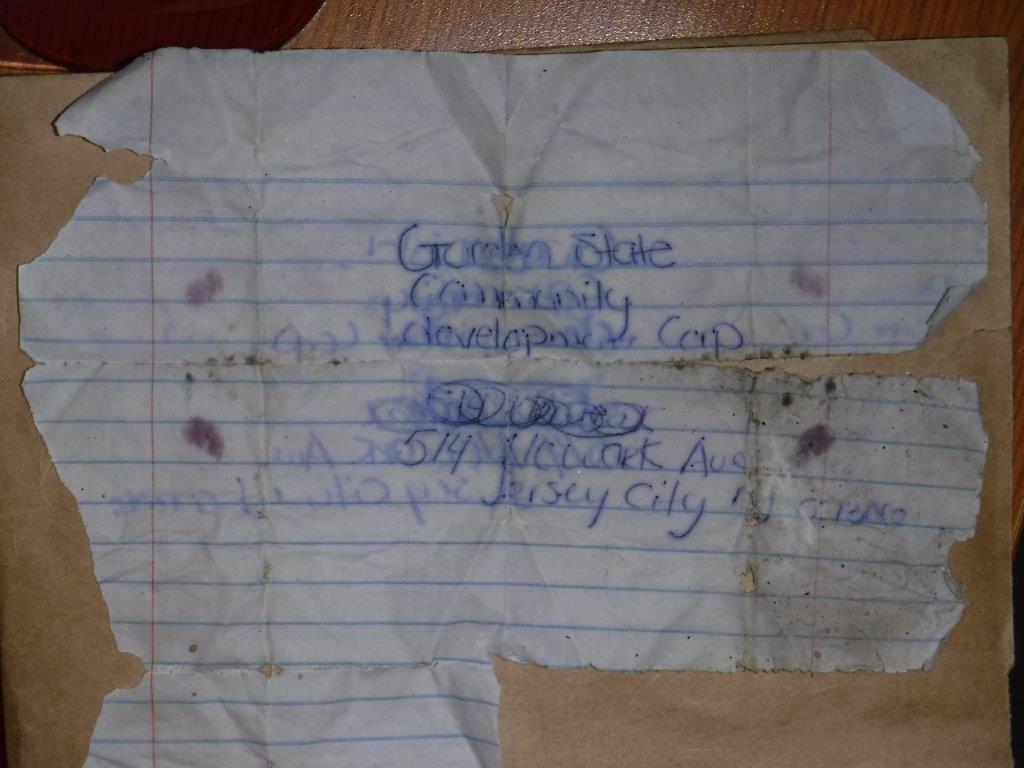 Garden State
Community
development Corp
514 Newark Ave
Jersey City NJ